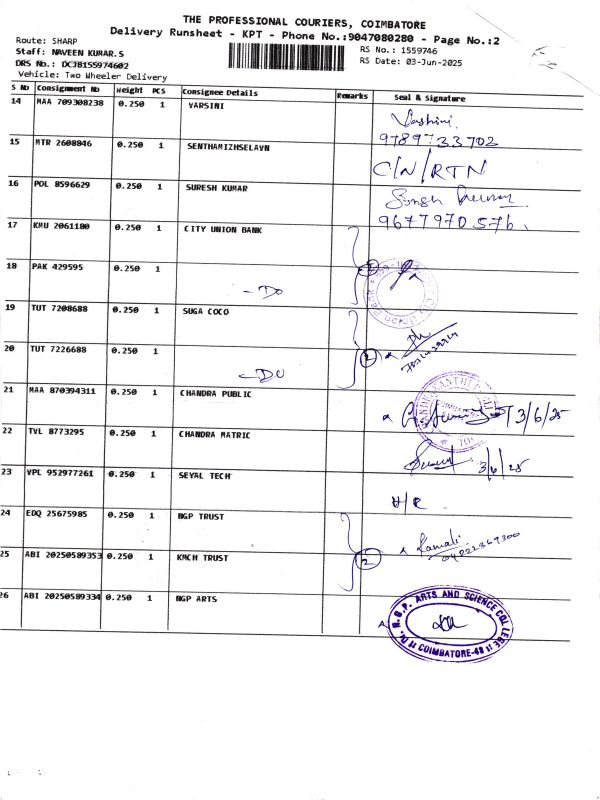 THE PROFESSIONAL COURIERS, COIMBATORE
Delivery Runsheet - KPT - Phone No.:9047080280 - Page No.:2
Route: SHARP
RS No.: 1559746
Staff: NAVEEN KUMAR.S
RS Date: 03-Jun-2025
DRS No.: DCJ8155974602
Vehicle: Two Wheeler Delivery
S No Consignment No Weight PCS Consignee Details Remarks Seal & Signature
14 MAA 709308238 0.250 1 VARSINI
Varshini.
9789733702
15 MTR 2608846 0.250 1 SENTHAMIZHSELAVN
C/N/RTN
16 POL 8596629 0.250 1 SURESH KUMAR
9677970576.
17 KMU 2061180 0.250 1 CITY UNION BANK
18 PAK 429595 0.250 1 2
-DO
19 TUT 7208688 0.250 1 SUGA COCO
20 TUT 7226688 0.250 1 2
-DO
21 MAA 870394311 0.250 1 CHANDRA PUBLIC
3/6/25
22 TVL 8773295 0.250 1 CHANDRA MATRIC
3/6/25
23 VPL 952977261 0.250 1 SEYAL TECH
24 EDQ 25675985 0.250 1 NGP TRUST
Kamali
25 ABI 20250589353 0.250 1 KMCH TRUST 2
26 ABI 20250589334 0.250 1 NGP ARTS
ARTS AND SCIENCE COLLEGE
COIMBATORE-48